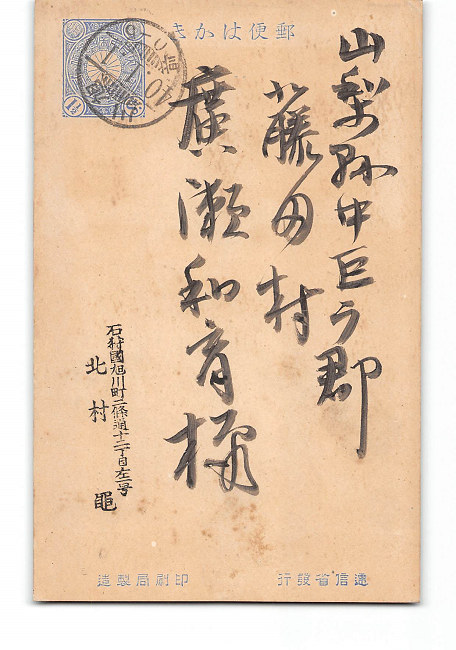 郵便はかき
山梨縣中巨摩郡
藤田村
廣瀬和育様
石狩國旭川町二條通十二丁目左一号
北村
1½
逓信省發行
印刷局製造